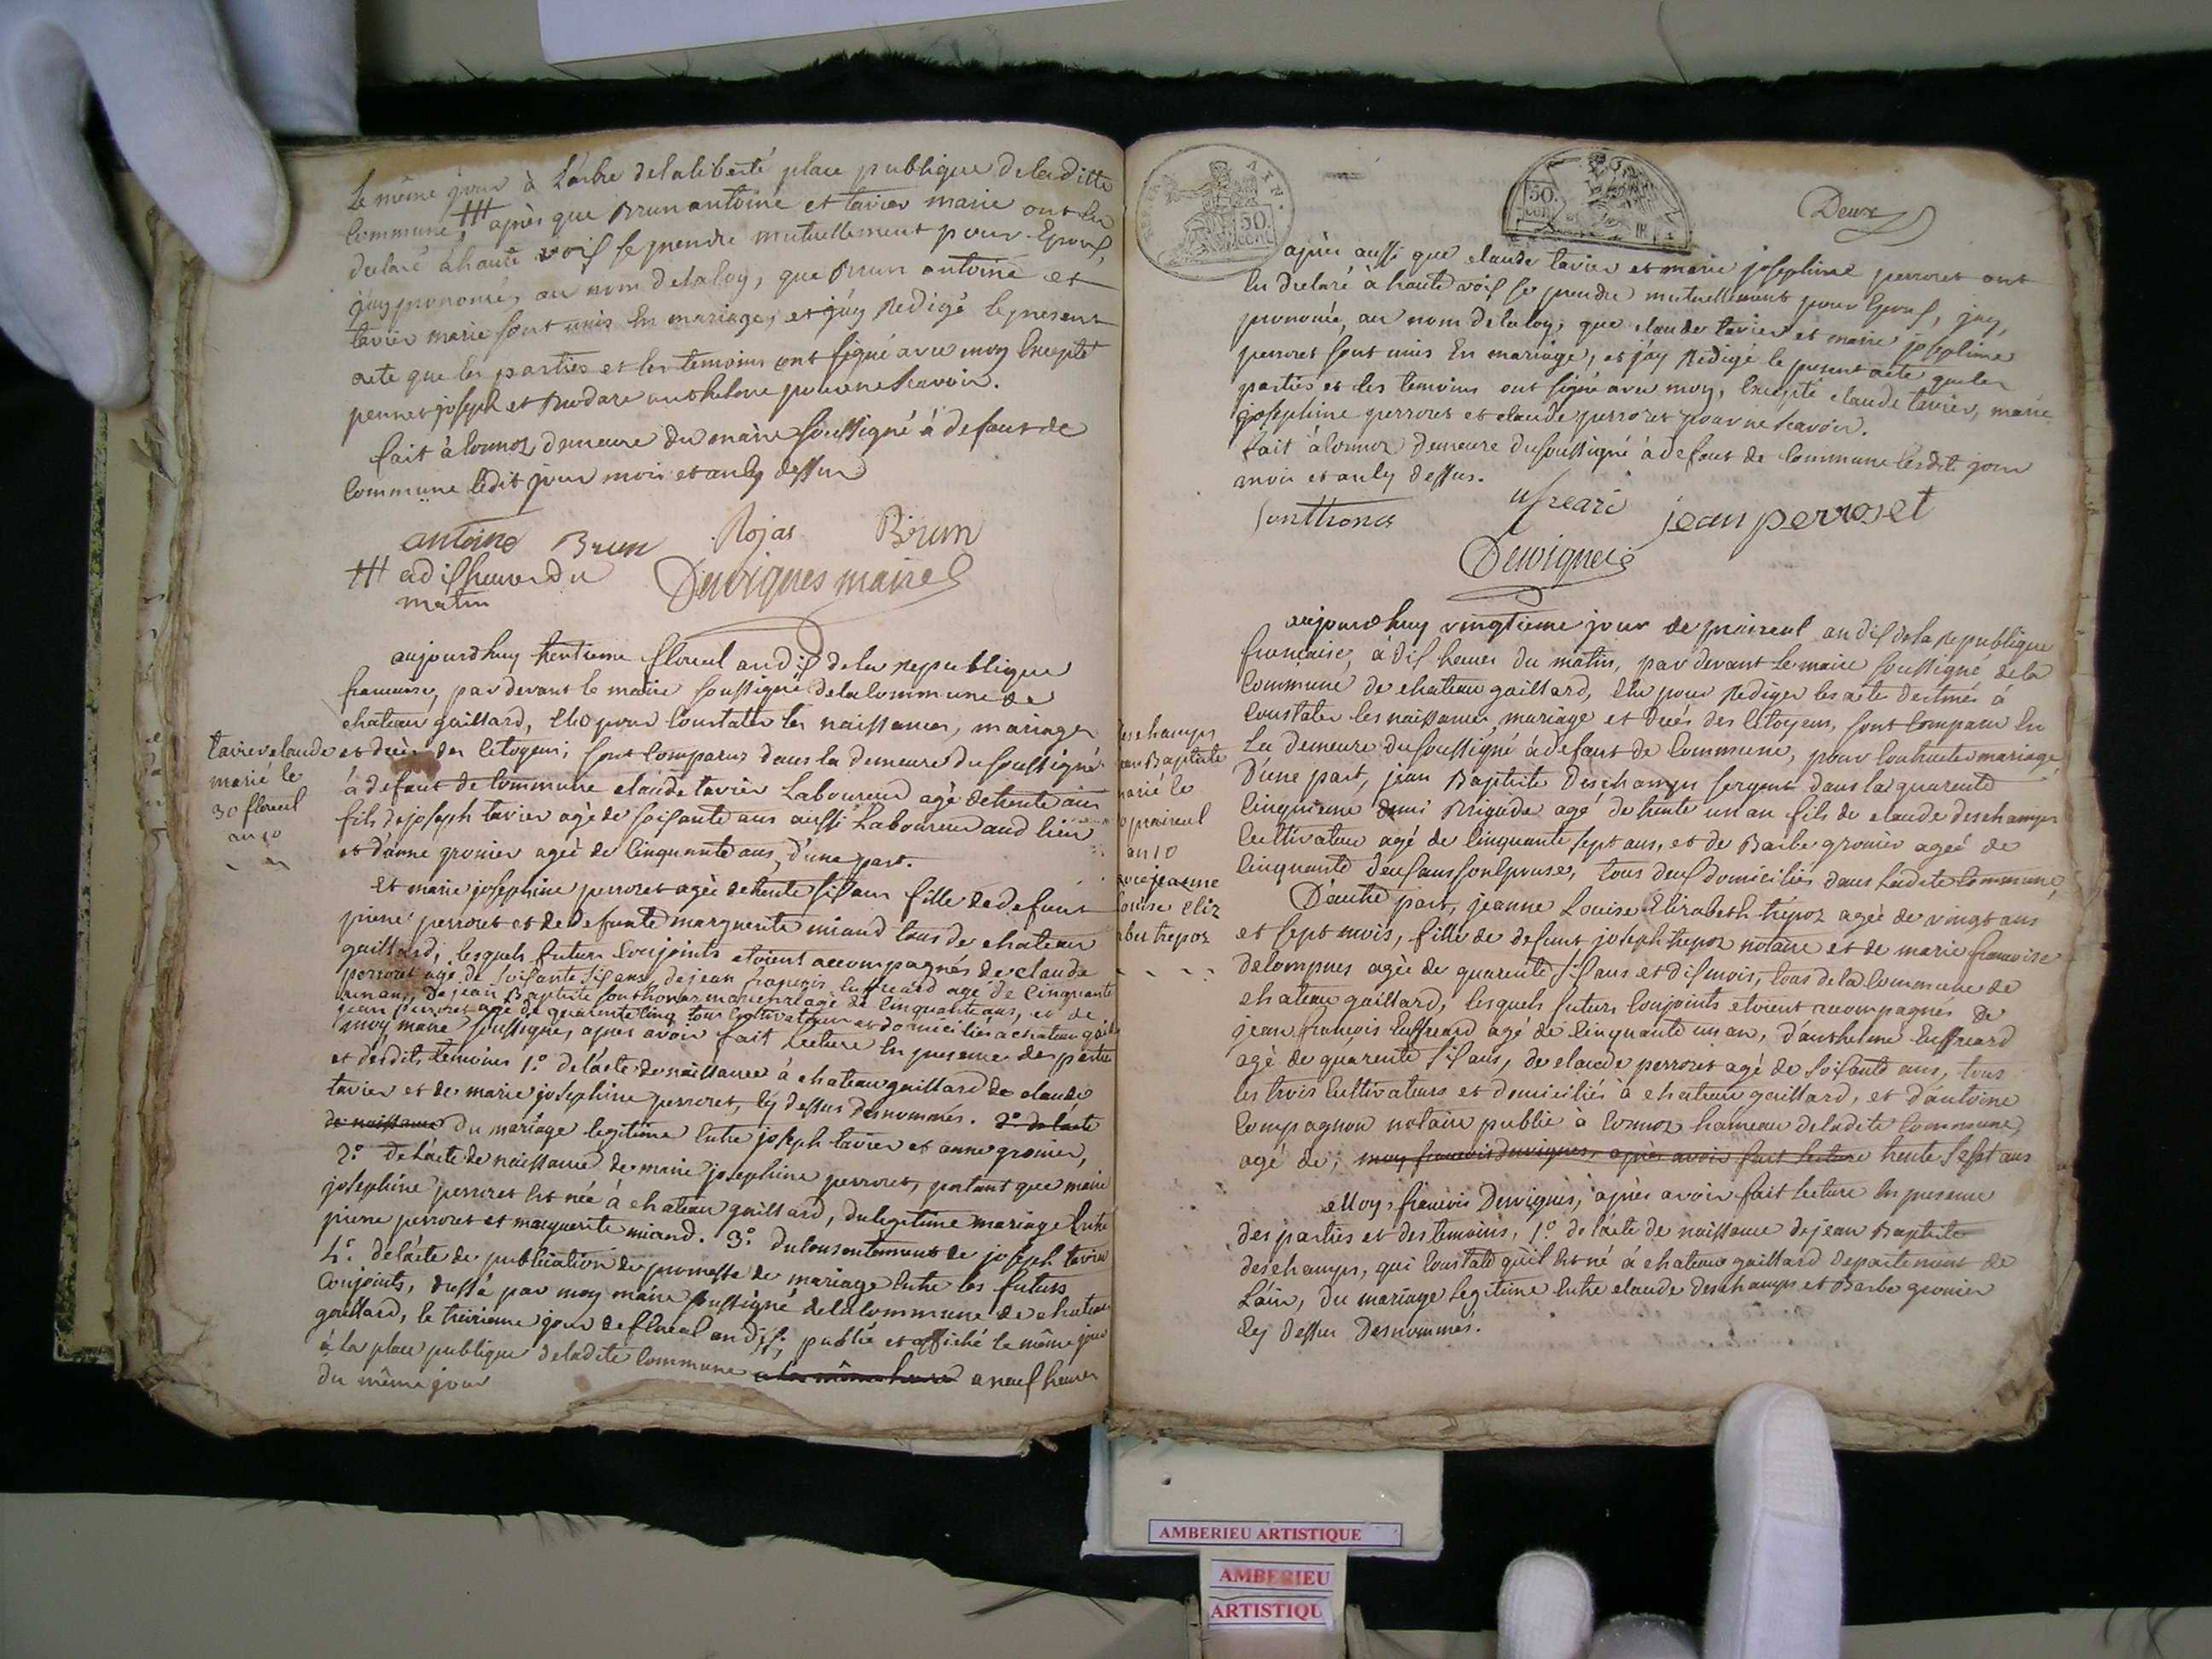 Le même jour à L'arbre delaliberté place publique deladitte
Commune, ╫ après que Brun antoine et tavier marie ont En
declaré à haute voix se prendre mutuellement pour Epoux,
j'ay prononcé, au nom delaloy, que Brun antoine et
tavier marie sont unis En mariage, et j'ay Redigé le present
acte que les parties et les temoins ont signé avec moy Excepté
perret joseph et anthelme pour ne scavoir.
fait à Cormoz, demeure du maire soussigné à defaut de
Commune lédit jour mois et an cy dessus
antoine Brun Rojas Brun
╫ a dix heures du
matin
Desvignes maire
aujourdhuy trentieme floreal an dix de la Republique
francaise, par devant le maire soussigné dela Commune de
chateau gaillard, Elu pour Constater les naissances, mariages
et decès des Citoyens; sont Comparus dans la demeure du soussigné
à defaut de Commune claude tavier Laboureur agé de trente ans
fils de joseph tavier agé de soixante ans aussi Laboureur aud. lieu
et d'anne gronier ageé de Cinquante ans, d'une part.
tavier claude
marié le
30 floreal
an 10
Et marie josephine perroret agée de trente six ans fille de defunt
pierre perroret et de defunte marguerite miand tous de chateau
gaillard, lesquels futurs Conjoints etoient accompagnés de claude
perroret agé de soixante six ans, de jean francois Euffreard agé de Cinquante
un ans, de jean Baptiste Fonthonas agé de Cinquante ans, et de
jean perroret agé de quarente Cinq tous Cultivateurs et domiciliés a chateau gail.
moy maire soussigné, apres avoir fait Lecture En presence des parties
et desdits temoins 1.° de l'acte de naissance à chateau gaillard de claude
tavier et de marie josephine perroret, cy dessus denommés. 2.° de l'acte
de naissance du mariage legitime Entre joseph tavier et anne gronier,
2.° de l'acte de naissance de marie josephine perroret, portant que marie
josephine perroret Est née à chateau gaillard, du legitime mariage Entre
pierre perroret et marguerite miand. 3.° du Consentement de joseph tavier
4.° de l'acte de publication de promesse de mariage Entre les futurs
Conjoints, dressé par moy maire soussigné dela Commune de chateau
gaillard, le jour de floreal an dix, publié et affiché le même jour
à la place publique deladite Commune a la même heure a neuf heures
du même jour
50.
cent
50.
cent
Deux
après aussi que claude tavier et marie josephine perroret ont
En declaré à haute voix se prendre mutuellement pour Epoux, j'ay
prononcé, au nom delaloy, que claude tavier et marie josephine
perroret sont unis En mariage, et j'ay Redigé le present acte que les
parties et les temoins ont signé avec moy, Excepté claude tavier, marie
josephine perroret et claude perroret pour ne scavoir.
fait à Cormoz demeure du soussigné à defaut de Commune lesdits jour
mois et an cy dessus.
fonthonas ufreare jean perroset
Desvignes
aujourdhuy vingtieme jour de praireal an dix dela Republique
francaise, à dix heures du matin, par devant le maire soussigné dela
Commune de chateau gaillard, Elu pour Rediger les actes destinés à
Constater les naissances, mariage et decès des Citoyens, sont Comparu En
La demeure du soussigné à defaut de Commune, pour Contracter mariage
D'une part, jean Baptiste Deschamps sergent dans la quarente
Cinquieme demi Brigade agé de trente un an fils de claude deschamps
Cultivateur agé de Cinquante sept ans, et de Barbe gronier ageé de
Cinquante deux ans son Epouse, tous deux domiciliés dans Ladite Commune,
deschamps
jean Baptiste
marié le
praireal
an 10
avec jeanne
Louise Eliz
abet trepoz
D'autre part, jeanne Louise Elizabeth trépoz agée de vingt ans
et sept mois, fille de defunt joseph trepoz notaire et de marie francoise
delompnes agée de quarente six ans et dix mois, tous dela Commune de
chateau gaillard, lesquels futurs Conjoints etoient accompagnés de
jean francois Euffreard agé de Cinquante un an, d'anthelme Euffreard
agé de quarente six ans, de claude perroret agé de soixante ans, tous
les trois Cultivateurs et domiciliés à chateau gaillard, et d'antoine
Compagnon notaire public à Cormoz hameau deladite Commune,
agé de; moy francois desvignes, après avoir fait lecture trente sept ans
Moy, francois Desvignes, après avoir fait lecture En presence
des parties et des temoins, 1.° de l'acte de naissance de jean Baptiste
deschamps, qui Constate qu'il Est né à chateau gaillard departement de
L'ain, du mariage legitime Entre claude Deschamps et Barbe gronier
cy dessus Denommés.
AMBERIEU ARTISTIQUE
AMBERIEU
ARTISTIQU